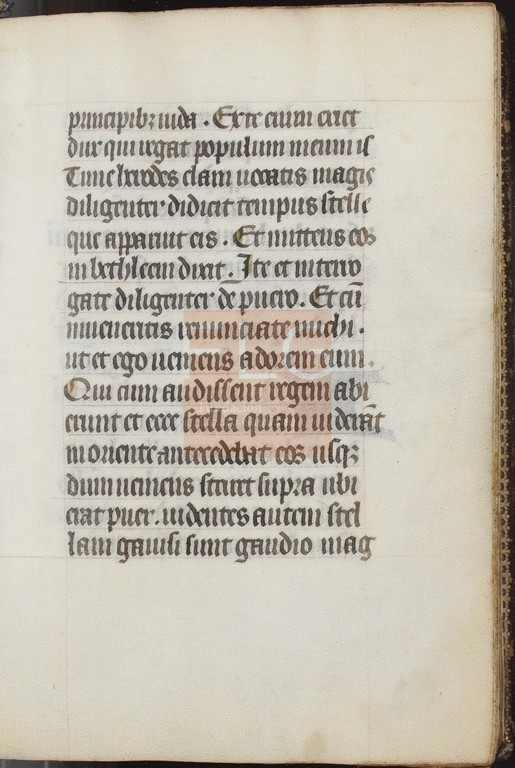 principibꝫ iuda . Ex te enim exiet
dux qui regat populum meum is
Tunc herodes clam uocatis magis
diligenter didicit tempus stelle
que apparuit eis . Et mittens eos
in bethleem dixit . Ite et interro
gate diligenter de puero . Et cū
inueneritis renunciate michi .
ut et ego ueniens adorem eum .
Qui cum audissent regem abi
erunt et ecce stella quam uiderāt
in oriente antecedebat eos usqꝫ
dum ueniens staret supra ubi
erat puer . uidentes autem stel
lam gauisi sunt gaudio mag